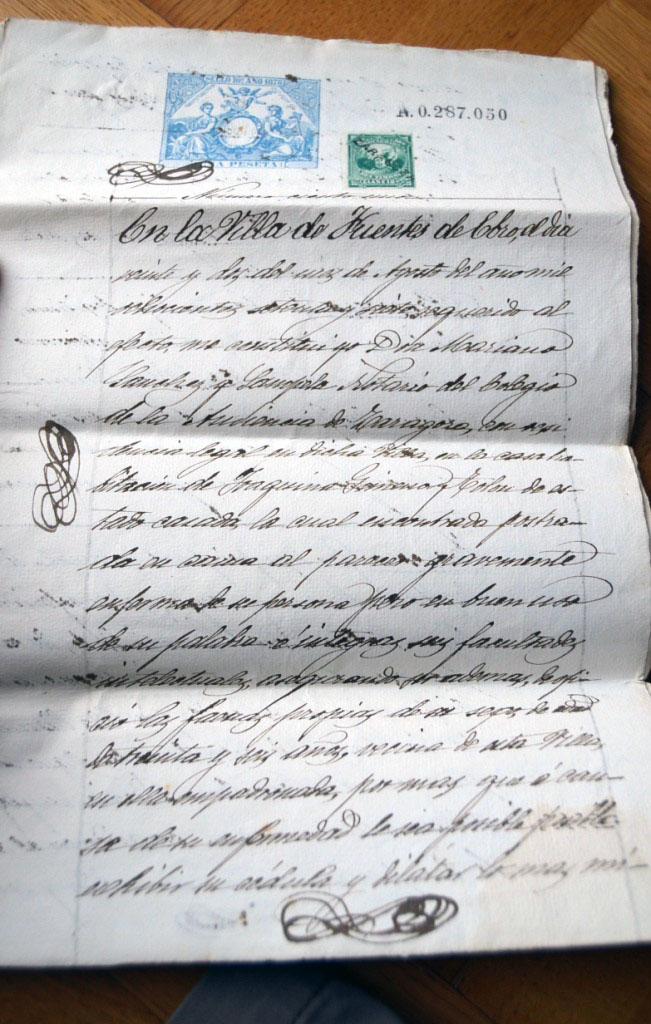 SELLO 10º AÑO 1878
A.0.287.050
UNA PESETA
Numero ciento
En la Villa de Fuentes de Ebro, el dia
veinte y dos del mes de Agosto del año mil
ochocientos setenta y ocho, requerido al
efecto, me constitui yo Don Mariano
Sanchez y Notario del Colegio
de la Audiencia de Zaragoza, con resi-
dencia legal en dicha Villa, en la casa ha-
bitacion de Joaquina Gimeno y de es-
tado casada, la cual encontrada postra-
da en cama al parecer gravemente
enferma de su persona pero en buen uso
de su palabra é integras sus facultades
intelectuales, asegurando, ademas,
las faenas propias de su sexo, de edad
de treinta y seis años, vecina de esta Villa,
en ella empadronada, por mas que á cau-
sa de su enfermedad le sea posible
exhibir su cédula y dilatar lo mas mi-